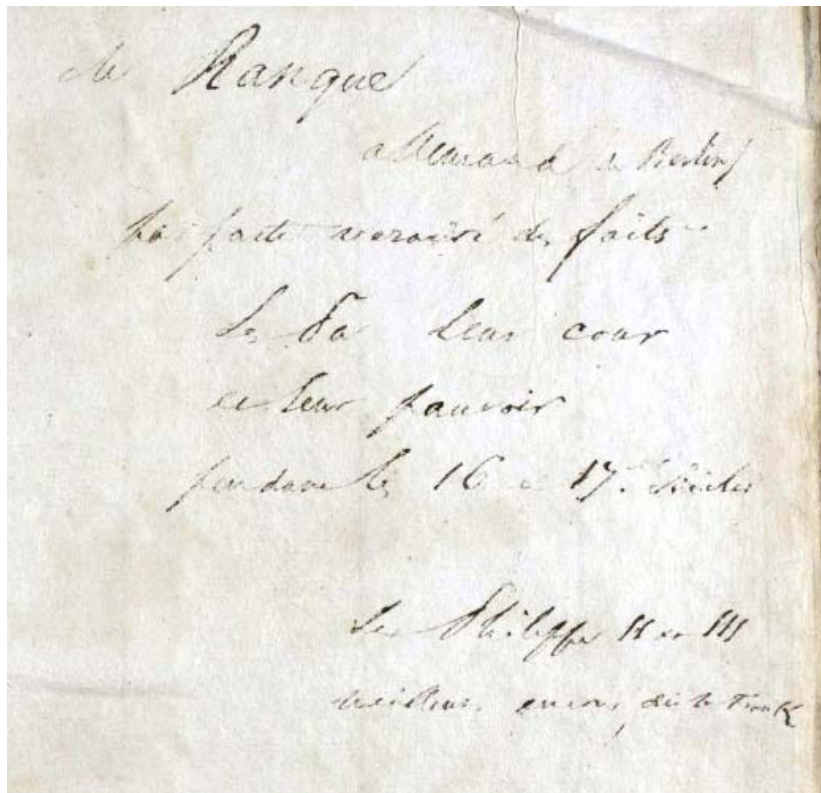 de Ranque
allemand de Berlin
parfaite des faits
Les Pa leur cour
et leur pouvoir
pendant les 16 et 17e siècles
Les Philippe II et III
meilleurs encore, dit le